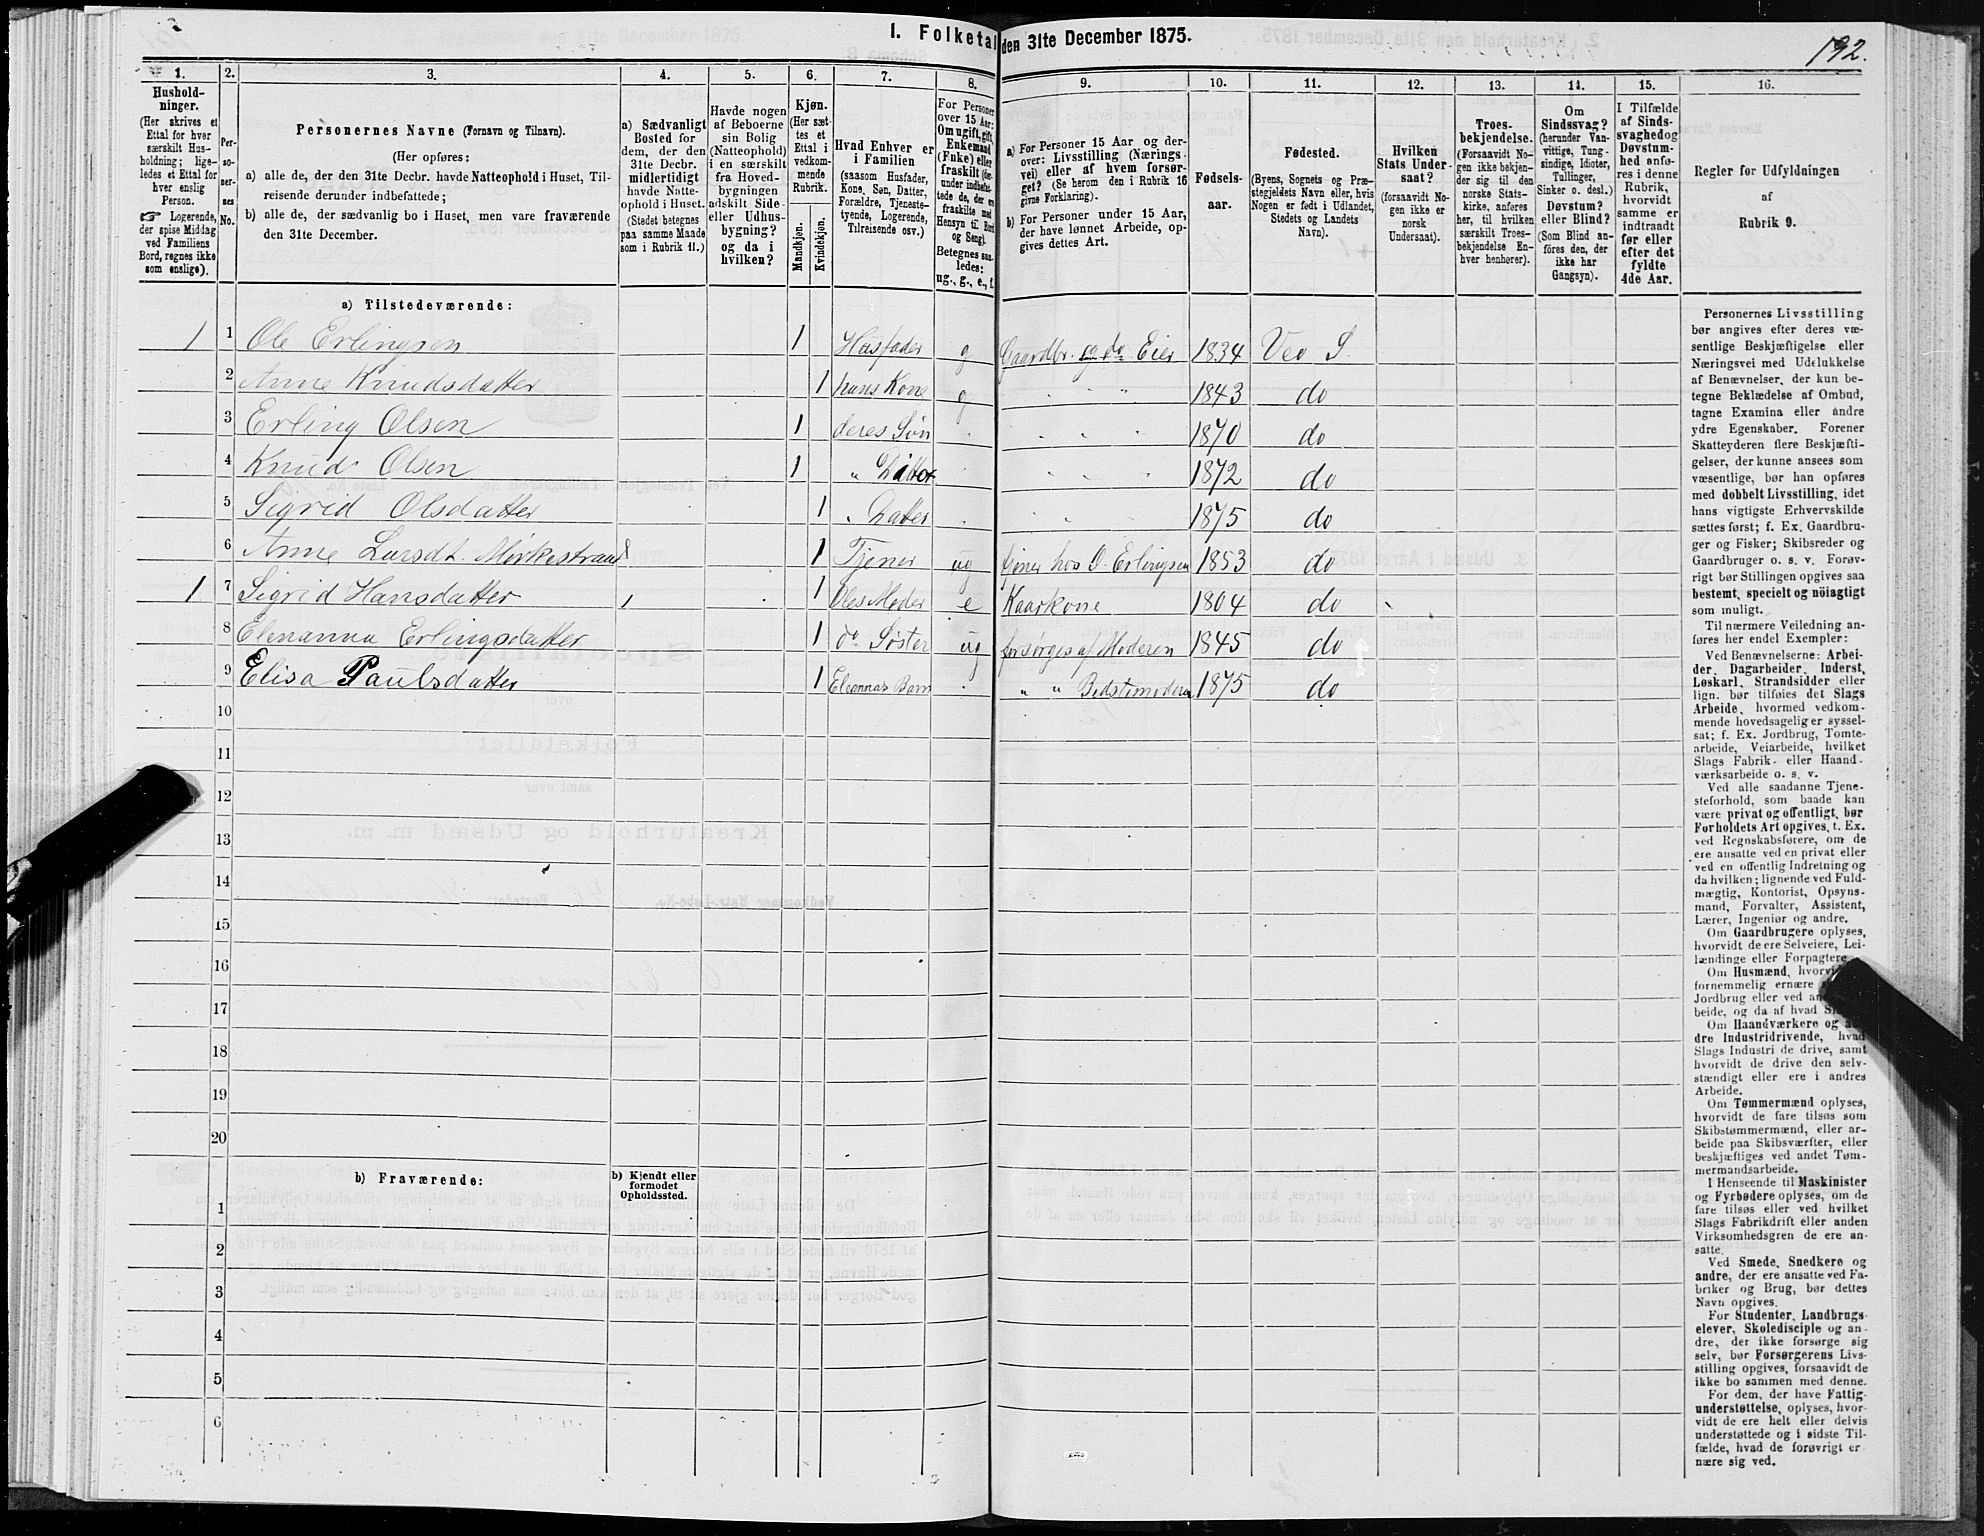 I. Folketal den 31te December 1875.
192.
1. 2. 3. 4. 5. 6. 7. 8. 9. 10. 11. 12. 13. 14. 15. 16.
Hushold-
ninger.
(Her skrives et
Ettal for hver
særskilt Hus-
holdning; lige-
ledes et Ettal for
hver enslig
Person.
☞ Logerende,
der spise Middag
ved Familiens
Bord, regnes ikke
som enslige).
Per-
so-
ner-
nes
No.
Personernes Navne (Fornavn og Tilnavn).
(Her opføres:
a) alle de, der den 31te Decbr. havde Natteophold i Huset, Til-
reisende derunder indbefattede;
b) alle de, der sædvanlig bo i Huset, men vare fraværende
den 31te December.
a) Sædvanligt
Bosted for
dem, der den
31te Decbr.
midlertidigt
havde Natte-
ophold i Huset.
(Stedet betegnes
paa samme Maade
som i Rubrik 11.)
Havde nogen
af Beboerne
sin Bolig
(Natteophold)
i en særskilt
fra Hoved-
bygningen
adskilt Side-
eller Udhus-
bygning?
og da i
hvilken?
Kjøn.
(Her sæt-
tes et
Ettal i
vedkom-
mende
Rubrik.
Mandkjøn.
Kvindekjøn.
Hvad Enhver er
i Familien
(saasom Husfader,
Kone, Søn, Datter,
Forældre, Tjeneste-
tyende, Logerende,
Tilreisende osv.)
For Personer
over 15 Aar:
Om ugift, gift,
Enkemand
(Enke) eller
fraskilt
Betegnes saa-
ledes:
ug., g., e., f.
a) For Personer 15 Aar og der-
over: Livsstilling (Nærings-
vei) eller af hvem forsør-
get? (Se herom den i Rubrik 16
givne Forklaring).
b) For Personer under 15 Aar,
der have lønnet Arbeide, op-
gives dettes Art.
Fødsels-
aar.
Fødested.
(Byens, Sognets og Præ-
stegjeldets Navn eller, hvis
Nogen er født i Udlandet,
Stedets og Landets
Navn).
Hvilken
Stats Under-
saat?
(forsaavidt No-
gen ikke er
norsk
Undersaat).
Troes-
bekjendelse.
(Forsaavidt No-
gen ikke bekjen-
der sig til den
norske Stats-
kirke, anføres
her, til hvilken
særskilt Troes-
bekjendelse En-
hver henhører).
Om
Sindssvag?
(herunder Van-
vittige, Tung-
sindige, Idioter,
Tullinger,
Sinker o. desl.)
Døvstum?
eller Blind?
(Som Blind an-
føres den, der
ikke har
Gangsyn).
I Tilfælde
af Sinds-
svaghed og
Døvstum-
hed anfø-
res i denne
Rubrik,
hvorvidt
samme er
indtraadt
før eller
efter det
fyldte
4de Aar.
Regler for Udfyldningen
af
Rubrik 9.
a) Tilstedeværende:
1 1 Ole Erlingsen 1 Husfader g Gaardbr. og do Eier 1834 Veo S.
2 Anne Knudsdatter 1 hans Kone g " " 1843 do
3 Erling Olsen 1 deres Søn 1870 do
4 Knud Olsen 1 " 1872 do
5 Sigrid Olsdatter 1 " Datter 1875 do
6 Anne Larsdt. Mørkestrand 1 Tjener ug tjener hos O. Erlingsen 1853 do
1 7 Sigrid Hansdatter 1 Oles Moder e Kaarkone 1804 do
8 Elenanna Erlingsdatter 1 do Søster ug forsørges af Moderen 1845 do
9 Elisa Paulsdatter 1 Elenannas Barn " " Bedstemoderen 1875 do
10
11
12
13
14
15
16
17
18
19
20
b) Fraværende:
b) Kjendt eller
formodet
Opholdssted.
1
2
3
4
5
6
Personernes Livsstilling
bør angives efter deres væ-
sentlige Beskjæftigelse eller
Næringsvei med Udelukkelse
af Benævnelser, der kun be-
tegne Beklædelse af Ombud,
tagne Examina eller andre
ydre Egenskaber. Forener
Skatteyderen flere Beskjæfti-
gelser, der kunne ansees som
væsentlige, bør han opføres
med dobbelt Livsstilling, idet
hans vigtigste Erhvervskilde
sættes først; f. Ex. Gaardbru-
ger og Fisker; Skibsreder og
Gaardbruger o. s. v. Forøv-
rigt bør Stillingen opgives saa
bestemt, specielt og nøiagtigt
som muligt.
Til nærmere Veiledning an-
føres her endel Exempler:
Ved Benævnelserne: Arbei-
der, Dagarbeider, Inderst,
Løskarl, Strandsidder eller
lign. bør tilføies det Slags
Arbeide, hvormed vedkom-
mende hovedsagelig er syssel-
sat; f. Ex. Jordbrug, Tomte-
arbeide, Veiarbeide, hvilket
Slags Fabrik- eller Haand-
værksarbeide o. s. v.
Ved alle saadanne Tjene-
steforhold, som baade kan
være privat og offentligt, bør
Forholdets Art opgives, t. Ex.
ved Regnskabsførere, om de
ere ansatte ved en privat eller
ved en offentlig Indretning og
da hvilken; lignende ved Fuld-
mægtig, Kontorist, Opsyns-
mand, Forvalter, Assistent,
Lærer, Ingeniør og andre.
Om Gaardbrugere oplyses,
hvorvidt de ere Selveiere, Lei-
lændinge eller Forpagtere.
Om Husmænd, hvorvidt
fornemmelig ernære
Jordbrug eller ved
beide, og da af hvad
Om Haandværkere og an-
dre Industridrivende, hvad
Slags Industri de drive, samt
hvorvidt de drive den selv-
stændigt eller ere i andres
Arbeide.
Om Tømmermænd oplyses,
hvorvidt de fare tilsøs som
Skibstømmermænd, eller ar-
beide paa Skibsværfter, eller
beskjæftiges ved andet Tøm-
mermandsarbeide.
I Henseende til Maskinister
og Fyrbødere oplyses, om de
fare tilsøs eller ved hvilket
Slags Fabrikdrift eller anden
Virksomhedsgren de ere an-
satte.
Ved Smede, Snedkere og
andre, der ere ansatte ved Fa-
briker og Brug, bør dettes
Navn opgives.
For Studenter, Landbrugs-
elever, Skoledisciple og an-
dre, der ikke forsørge sig
selv, bør Forsørgerens Livs-
stilling opgives, forsaavidt de
ikke bo sammen med denne.
For dem, der have Fattig-
understøttelse, oplyses, hvor-
vidt de ere helt eller delvis
understøttede og i sidste Til-
fælde, hvad de forøvrigt er-
nære sig ved.